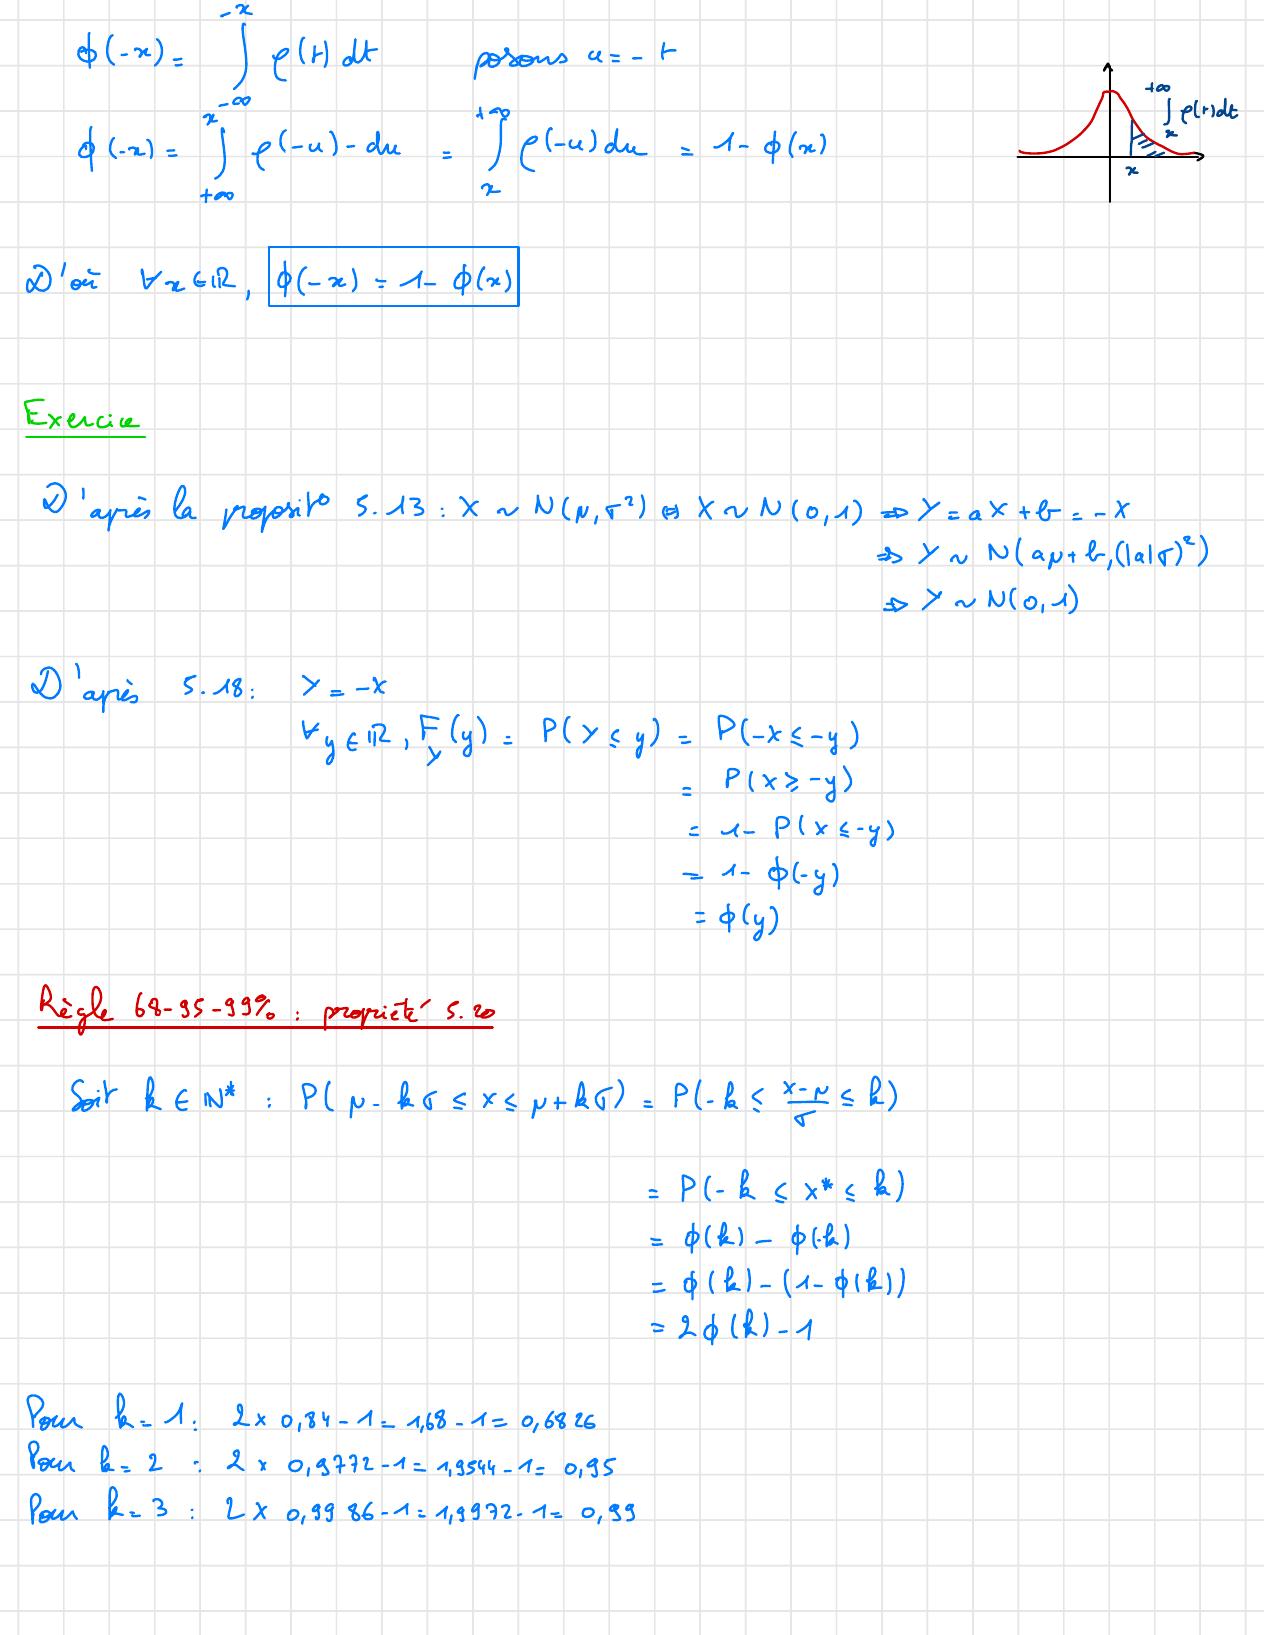 ϕ(-x) = ∫_{-∞}^{-x} φ(t) dt posons u = -t
ϕ(-x) = ∫_{+∞}^{x} φ(-u) - du = ∫_{x}^{+∞} φ(-u) du = 1 - ϕ(x)
∫_{x}^{+∞} φ(t) dt
x
D'où ∀x ∈ ℝ, ϕ(-x) = 1 - ϕ(x)
Exercice
D'après la proposit° 5.13 : X ~ N(μ, σ²) ⇔ X ~ N(0,1) ⇒ Y = aX + b = -X
⇒ Y ~ N(aμ + b, (|a|σ)²)
⇒ Y ~ N(0,1)
D'après 5.18 : Y = -X
∀y ∈ ℝ, F_Y(y) = P(Y ≤ y) = P(-X ≤ -y)
= P(X ≥ -y)
= 1 - P(X ≤ -y)
= 1 - ϕ(-y)
= ϕ(y)
Règle 68-95-99% : propriété 5.20
Soit k ∈ ℕ* : P(μ - kσ ≤ X ≤ μ + kσ) = P(-k ≤ (X-μ)/σ ≤ k)
= P(-k ≤ X* ≤ k)
= ϕ(k) - ϕ(-k)
= ϕ(k) - (1 - ϕ(k))
= 2ϕ(k) - 1
Pour k = 1 : 2 × 0,84 - 1 = 1,68 - 1 = 0,6826
Pour k = 2 : 2 × 0,9772 - 1 = 1,9544 - 1 = 0,95
Pour k = 3 : 2 × 0,9986 - 1 = 1,9972 - 1 = 0,99